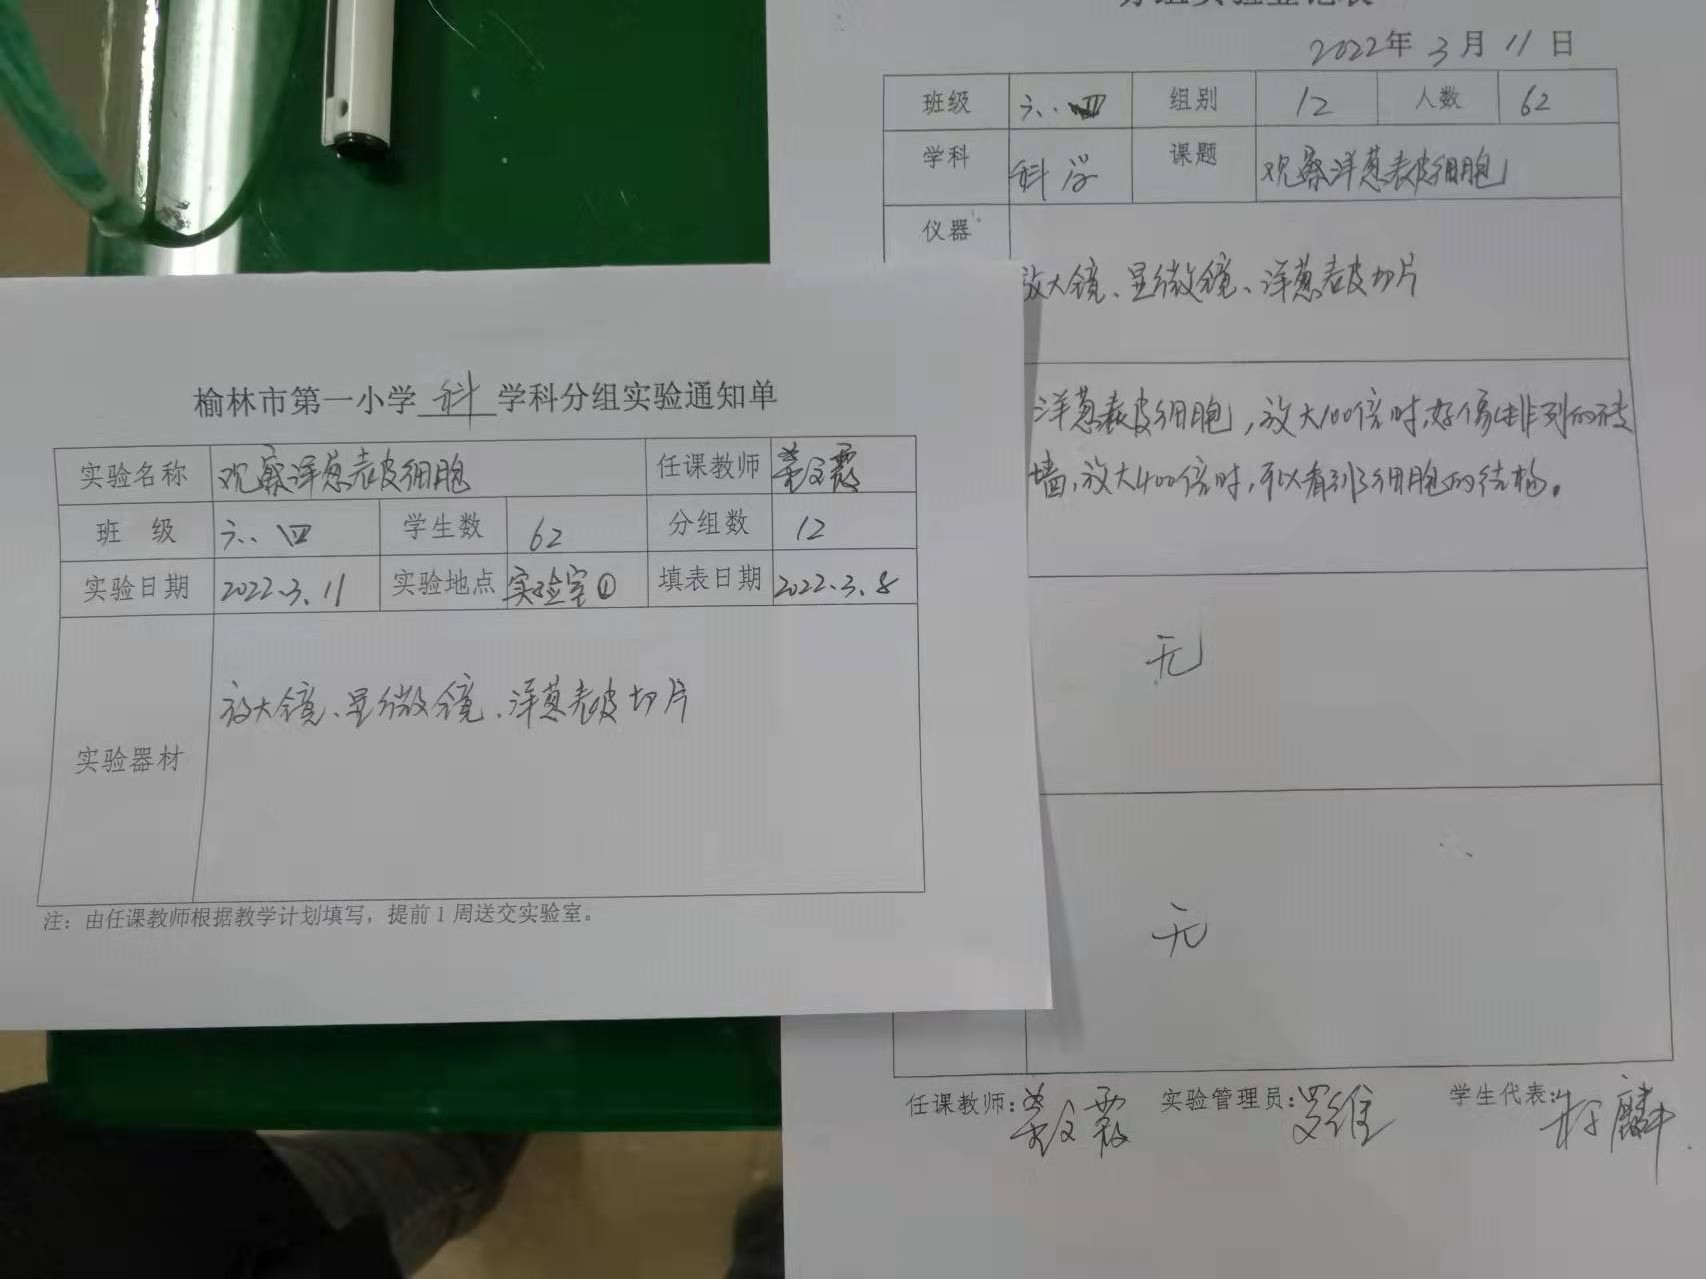 榆林市第一小学 科 学科分组实验通知单
实验名称 观察洋葱表皮细胞 任课教师
班 级 六.四 学生数 62 分组数 12
实验日期 2022.3.11 实验地点 实验室① 填表日期 2022.3.8
放大镜、显微镜、洋葱表皮切片
实验器材
注：由任课教师根据教学计划填写，提前1周送交实验室。
分组实验登记表
2022年 3月 11日
班级 六.四 组别 12 人数 62
学科 科学 课题 观察洋葱表皮细胞
仪器
放大镜、显微镜、洋葱表皮切片
洋葱表皮细胞，放大100倍时，好像排列的砖
墙，放大400倍时，可以看到细胞的结构。
无
无
任课教师： 实验管理员：罗维 学生代表：